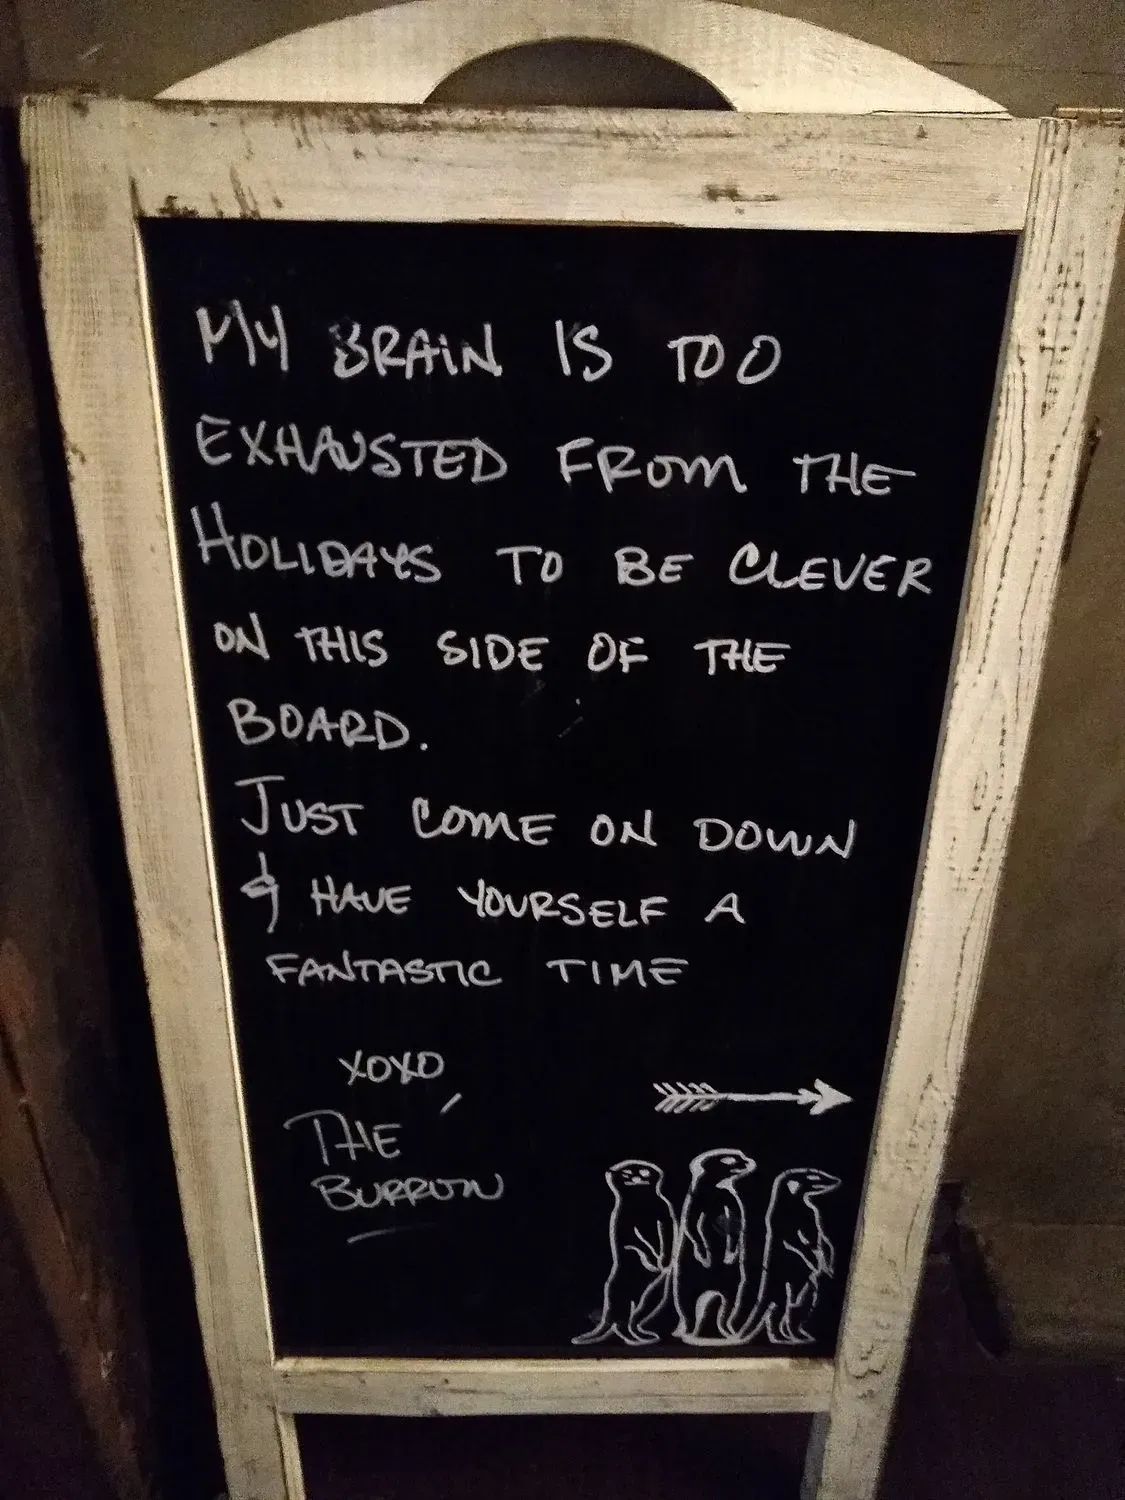 MY BRAIN IS TOO
EXHAUSTED FROM THE
HOLIDAYS TO BE CLEVER
ON THIS SIDE OF THE
BOARD.
JUST COME ON DOWN
& HAVE YOURSELF A
FANTASTIC TIME
XOXO
THE
BURROW